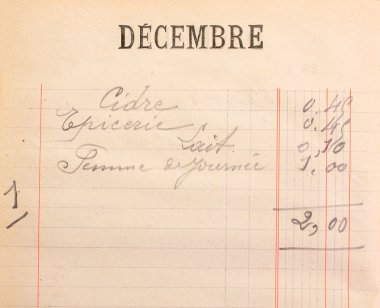 DÉCEMBRE
Cidre 0.45
Epicerie 0.45
Lait 0,10
Femme de journée 1.00
1
2,00